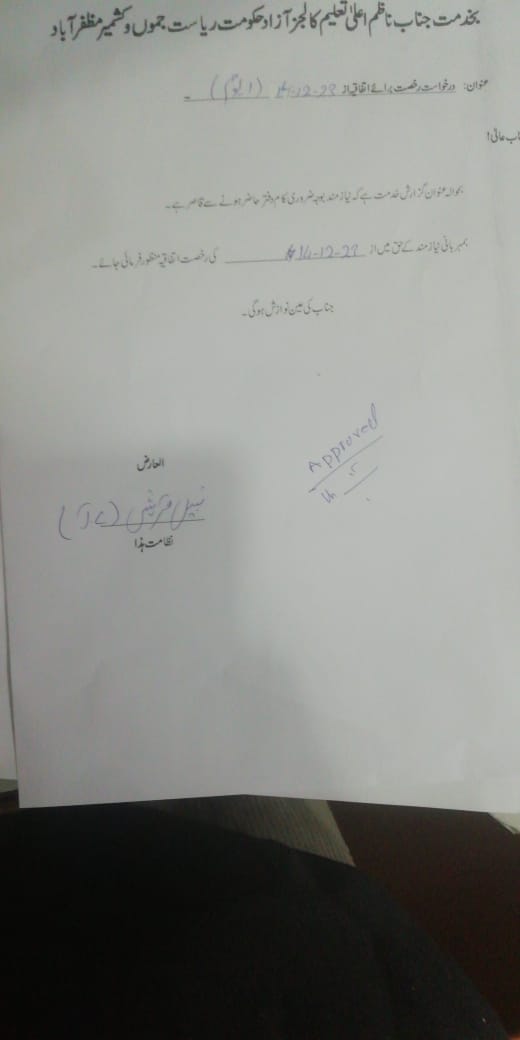 بخدمت جناب ناظم اعلیٰ تعلیم کالجز آزاد حکومت ریاست جموں و کشمیر مظفر آباد
عنوان: درخواست رخصت برائے اتفاقیہ از 14-12-22 (1 یوم) ۔
جناب عالی!
بحوالہ عنوان گزارش خدمت ہے کہ نیاز مند بوجہ ضروری کام دفتر حاضر ہونے سے قاصر ہے۔
بمہربانی نیاز مند کے حق میں از 14-12-22 کی رخصت اتفاقیہ منظور فرمائی جائے۔
جناب کی عین نوازش ہوگی۔
Approved
العارض
نبیل قریشی
نظامت ہذا